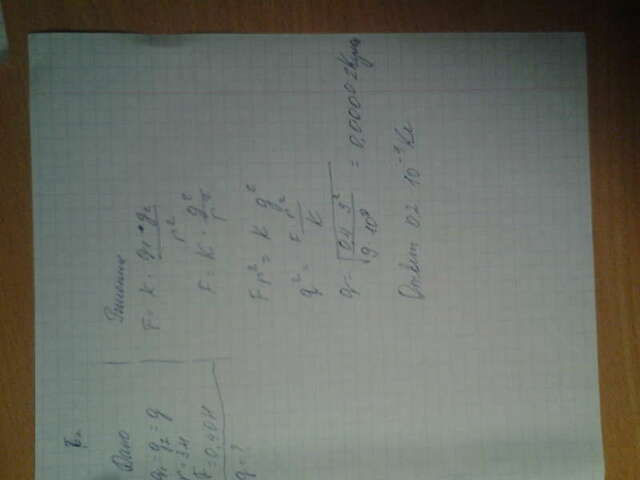 Дано
q₁ = q₂ = q
r = 3м
F = 0,40Н
q = ?
Решение
F = K · q₁ · q₂ / r²
F = K · q² / r²
F r² = K q²
q² = F r² / K
q = √(0,4 · 3² / 9 · 10⁹) =
Ответ 0,2 · 10⁻⁴ Кл